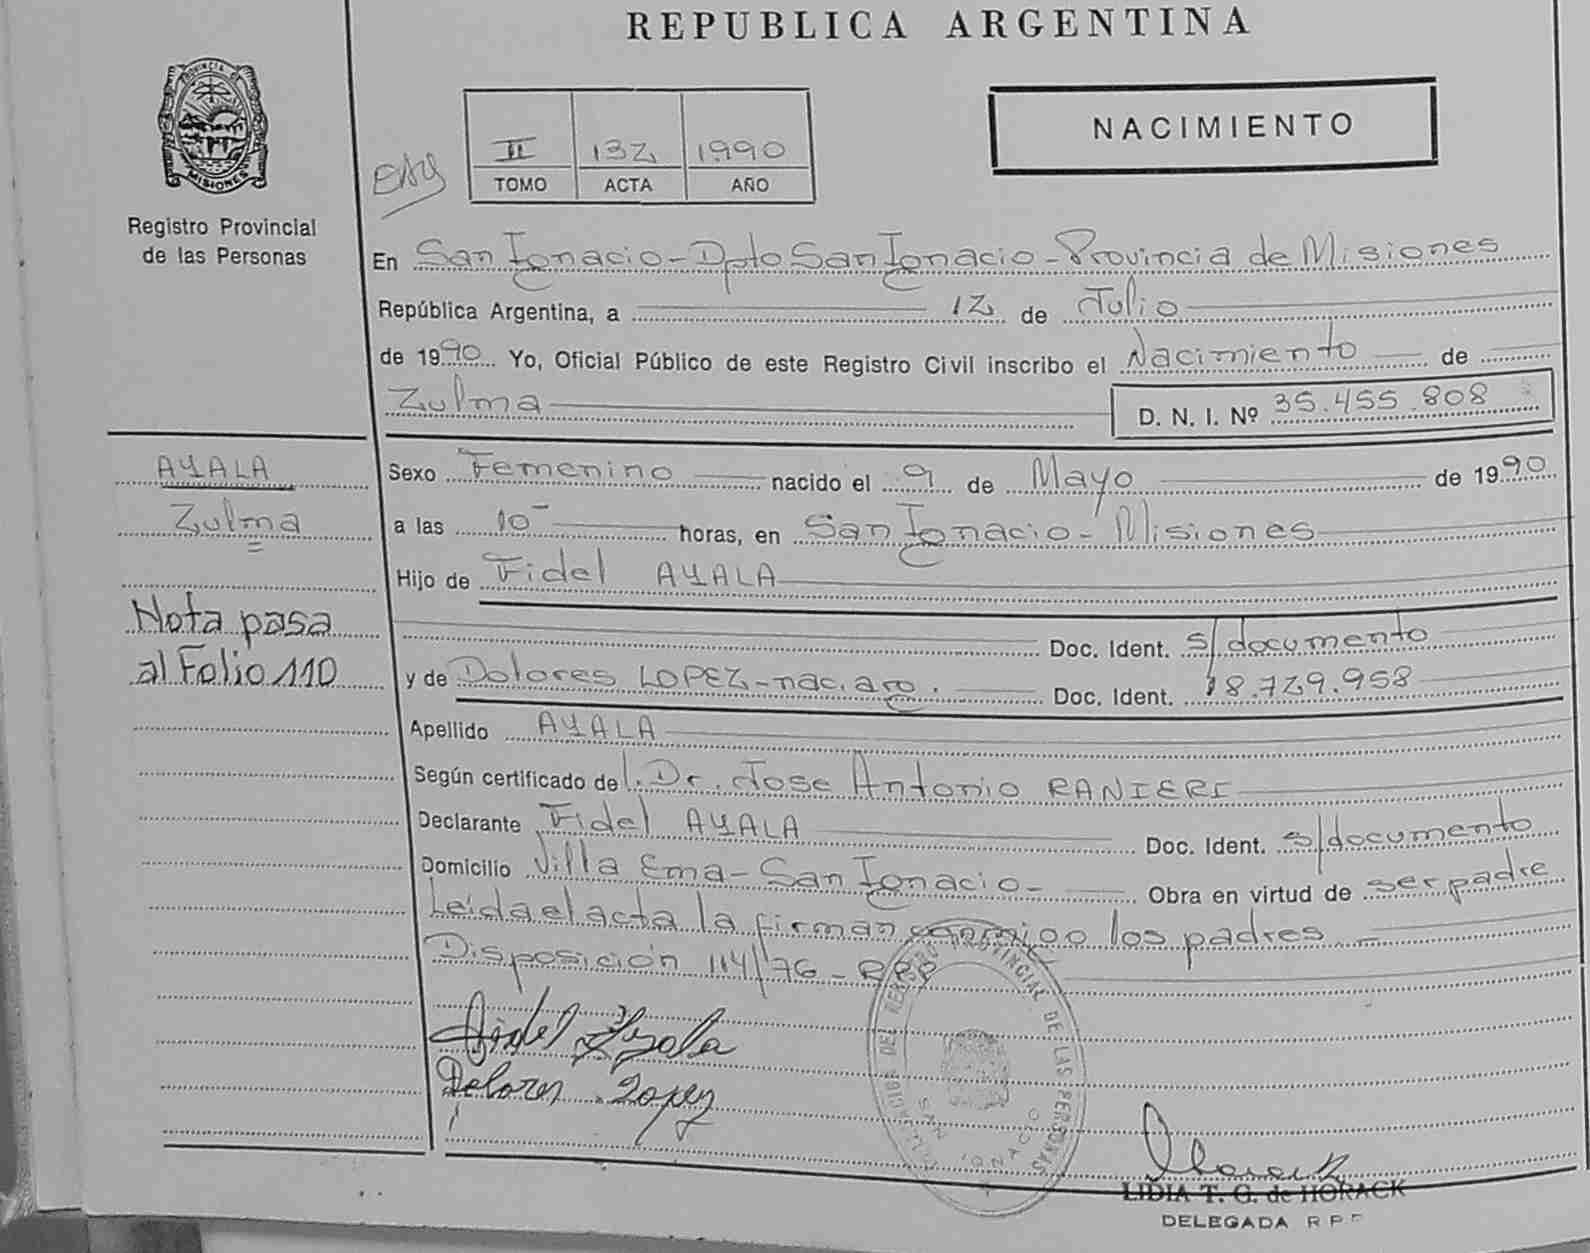 REPUBLICA ARGENTINA
PROVINCIA DE
MISIONES
Registro Provincial
de las Personas
II 132 1990
TOMO ACTA AÑO
NACIMIENTO
En San Ignacio - Dpto San Ignacio - Provincia de Misiones
República Argentina, a 12 de Julio
de 1990 Yo, Oficial Público de este Registro Civil inscribo el Nacimiento de
Zulma D. N. I. Nº 35.455.808
AYALA
Zulma
Nota pasa
al Folio 110
Sexo Femenino nacido el 9 de Mayo de 1990
a las 10 horas, en San Ignacio - Misiones
Hijo de Fidel AYALA
Doc. Ident. s/documento
y de Dolores LOPEZ - nac. arg. Doc. Ident. 18.729.958
Apellido AYALA
Según certificado del Dr. Jose Antonio RANIERI
Declarante Fidel AYALA Doc. Ident. s/documento
Domicilio Villa Ema - San Ignacio - Obra en virtud de ser padre
Leída el acta la firman conmigo los padres -
Disposición 114/76 - RPP
Fidel Ayala
Dolores Lopez
REGISTRO PROVINCIAL DE LAS PERSONAS
SAN IGNACIO
LIDIA T. G. de HORACK
DELEGADA R P P